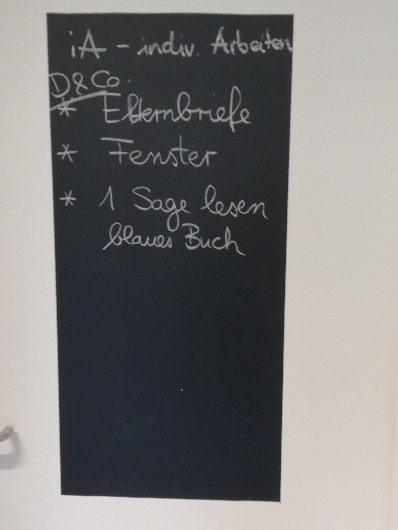 iA - indiv. Arbeiten
D&Co.
* Elternbriefe
* Fenster
* 1 Sage lesen
blaues Buch